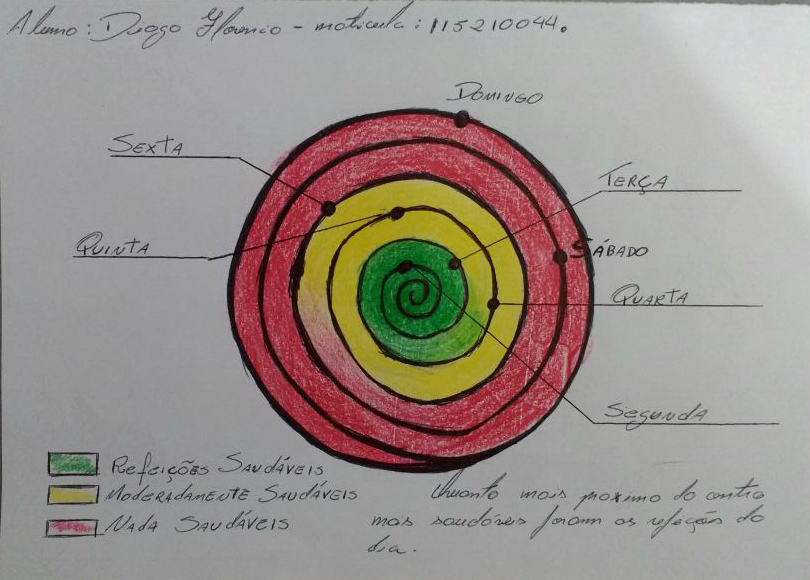 Aluno: Diogo Florencio - matricula: 115210044.
DOMINGO
SEXTA
TERÇA
QUINTA
SÁBADO
QUARTA
Segunda
REFEIÇÕES SAUDÁVEIS
MODERADAMENTE SAUDÁVEIS
NADA SAUDÁVEIS
Quanto mais proximo do centro
mais saudáveis foram as refeições do
dia.